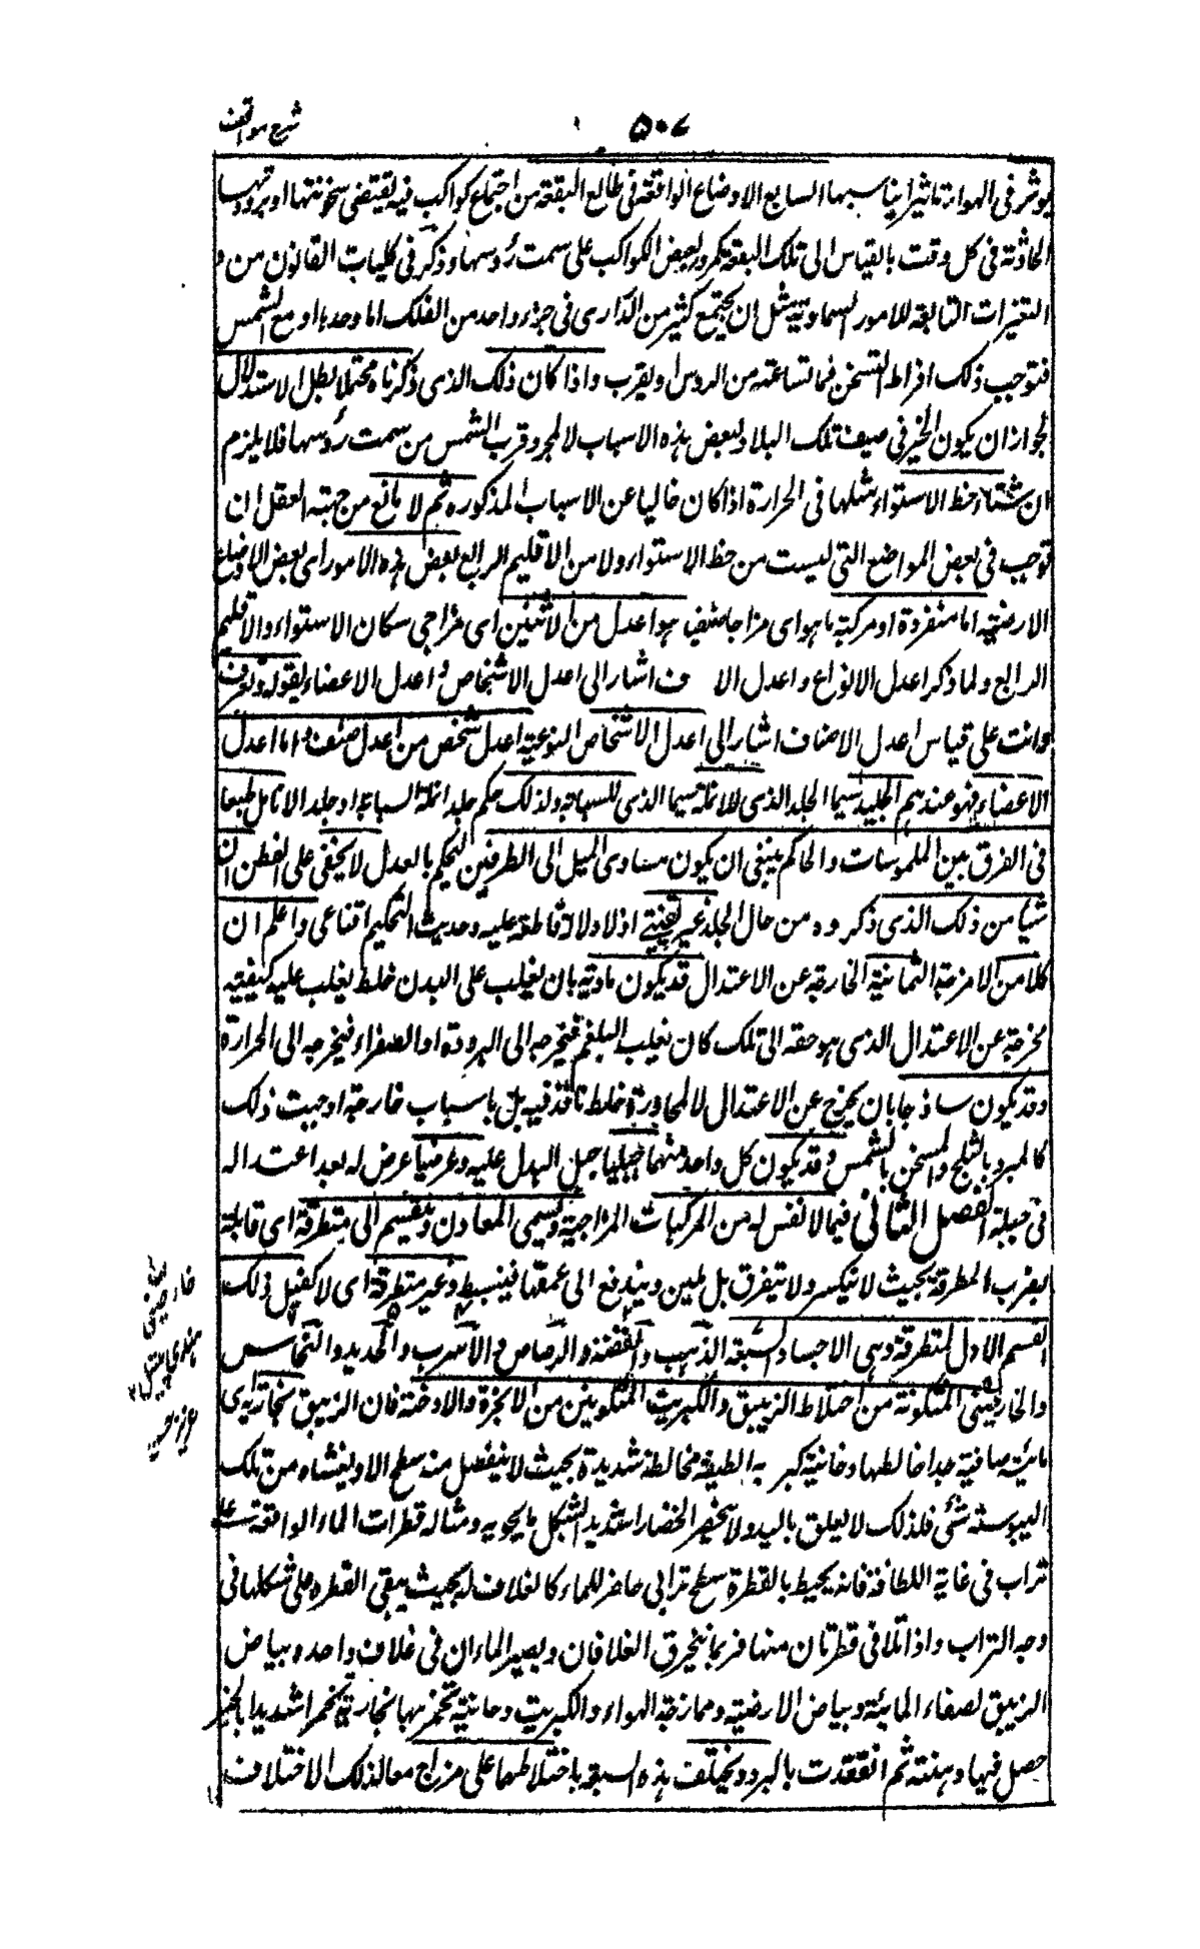 شرح مواقف
٥٠٧
يوثر فى الهواء تاثيرا يناسبها السابع الاوضاع الواقعة فى طالع البقعة من اجتماع كواكب فيه يقتضى سخونتها او برودتها
الحادثة فى كل وقت بالقياس الى تلك البقعة كمرور بعض الكواكب على سمت رؤسها وذكر فى كليات القانون من
التغيرات التابعة للامور السماوية مثل ان يجتمع كثير من الدرارى فى جزء واحد من الفلك اما وحدها او مع الشمس
فتوجب ذلك افراط التسخن فيما تسامته من الروس او يقرب واذا كان ذلك الذى ذكرناه محتملا بطل الاستدلال
لجواز ان يكون الحر فى صيف تلك البلاد لبعض هذه الاسباب لا لمجرد قرب الشمس من سمت رؤسها فلا يلزم
ان شتاء خط الاستواء مثلها فى الحرارة اذا كان خاليا عن الاسباب المذكوره ثم لا مانع من جهة العقل ان
توجب فى بعض المواضع التى ليست من خط الاستواء ولا من الاقليم الرابع بعض هذه الامور اى بعض الاوضاع
الارضية اما منفردة او مركبة ما هو اى مزاجا صنفيا هو اعدل من الاثنين اى مزاجى سكان الاستواء والاقليم
الرابع ولما ذكر اعدل الانواع واعدل الا ف اشار الى اعدل الاشخاص و اعدل الاعضاء بقوله وتعرف
وانت على قياس اعدل الاصناف اشار الى اعدل الاشخاص النوعية اعدل شخص من اعدل صنف و اما اعدل
الاعضاء فهو عندهم الجلد سيما الجلد الذى للانملة سيما الذى للسبابة ولذلك حكم جلد انملة السبابة او جلد الانامل طبعا
فى الفرق بين الملموسات والحاكم ينبغى ان يكون مساوى الميل الى الطرفين ليحكم بالعدل لا يخفى على الفطن ان
شيا من ذلك الذى ذكروه من حال الجلد غير يقينى اذ لا دلالة قاطعة عليه وحديث التحكيم اقناعى واعلم ان
كلا من الامزجة الثمانية الخارجة عن الاعتدال قد يكون مادية بان يغلب على البدن خلط يغلب عليه كيفيته
يخرجه عن الاعتدال الذى هو حقه الى تلك كان يغلب البلغم فيخرجه الى البرودة او الصفراء فيخرجه الى الحرارة
وقد يكون ساذجا بان يخرج عن الاعتدال لا لمجاورة خلط نافذ فيه بل باسباب خارجة اوجبت ذلك
كالمبرد بالثلج والمسخن بالشمس وقد يكون كل واحد منهما جبليا جبل البدن عليه وعرضيا عرض له بعد اعتداله
فى جبلته الفصل الثانى فيما لا نفس له من المركبات المزاجية ويسمى المعادن وتنقسم الى متطرقة اى قابلة
لضرب المطرقة بحيث لا ينكسر ولا يتفرق بل يلين ويندفع الى عمقها فينبسط وغير متطرقة اى لا كقبل ذلك
القسم الاول المتطرقة وهى الاجساد السبعة الذهب والفضة والرصاص و الاسرب والحديد والنحاس
والخارصينى المتكونة من اختلاط الزيبق والكبريت المتكونين من الابخرة والادخنة فان الزيبق بخارية اى
مائية صافية جدا خالطها دخانية كبر ية لطيفة مخالطة شديدة بحيث لا ينفصل منه سطح الا ويغشاه من تلك
اليبوسة شئ فلذلك لا يعلق باليد ولا ينحصر انحصارا شديد الشكل ما يحويه ومثاله قطرات الماء الواقعة على
تراب فى غاية اللطافة فانه يحيط بالقطرة سطح ترابى حاضر للماء كالغلاف له بحيث يبقى القطره على شكلها فى
وجه التراب واذا تلاقى قطرتان منها فربما ينخرق الغلافان ويصير الماءان فى غلاف واحد وبياض
الزيبق لصفاء المائية وبياض الارضية وممازجة الهواء والكبريت دخانية تخمر بها بخارية تخمرا شديدا بالحر
حصل فيها دهنية ثم انعقدت بالبرد ويختلف هذه السبعة باختلاطهما على مزاج معا لذلك الاختلاف